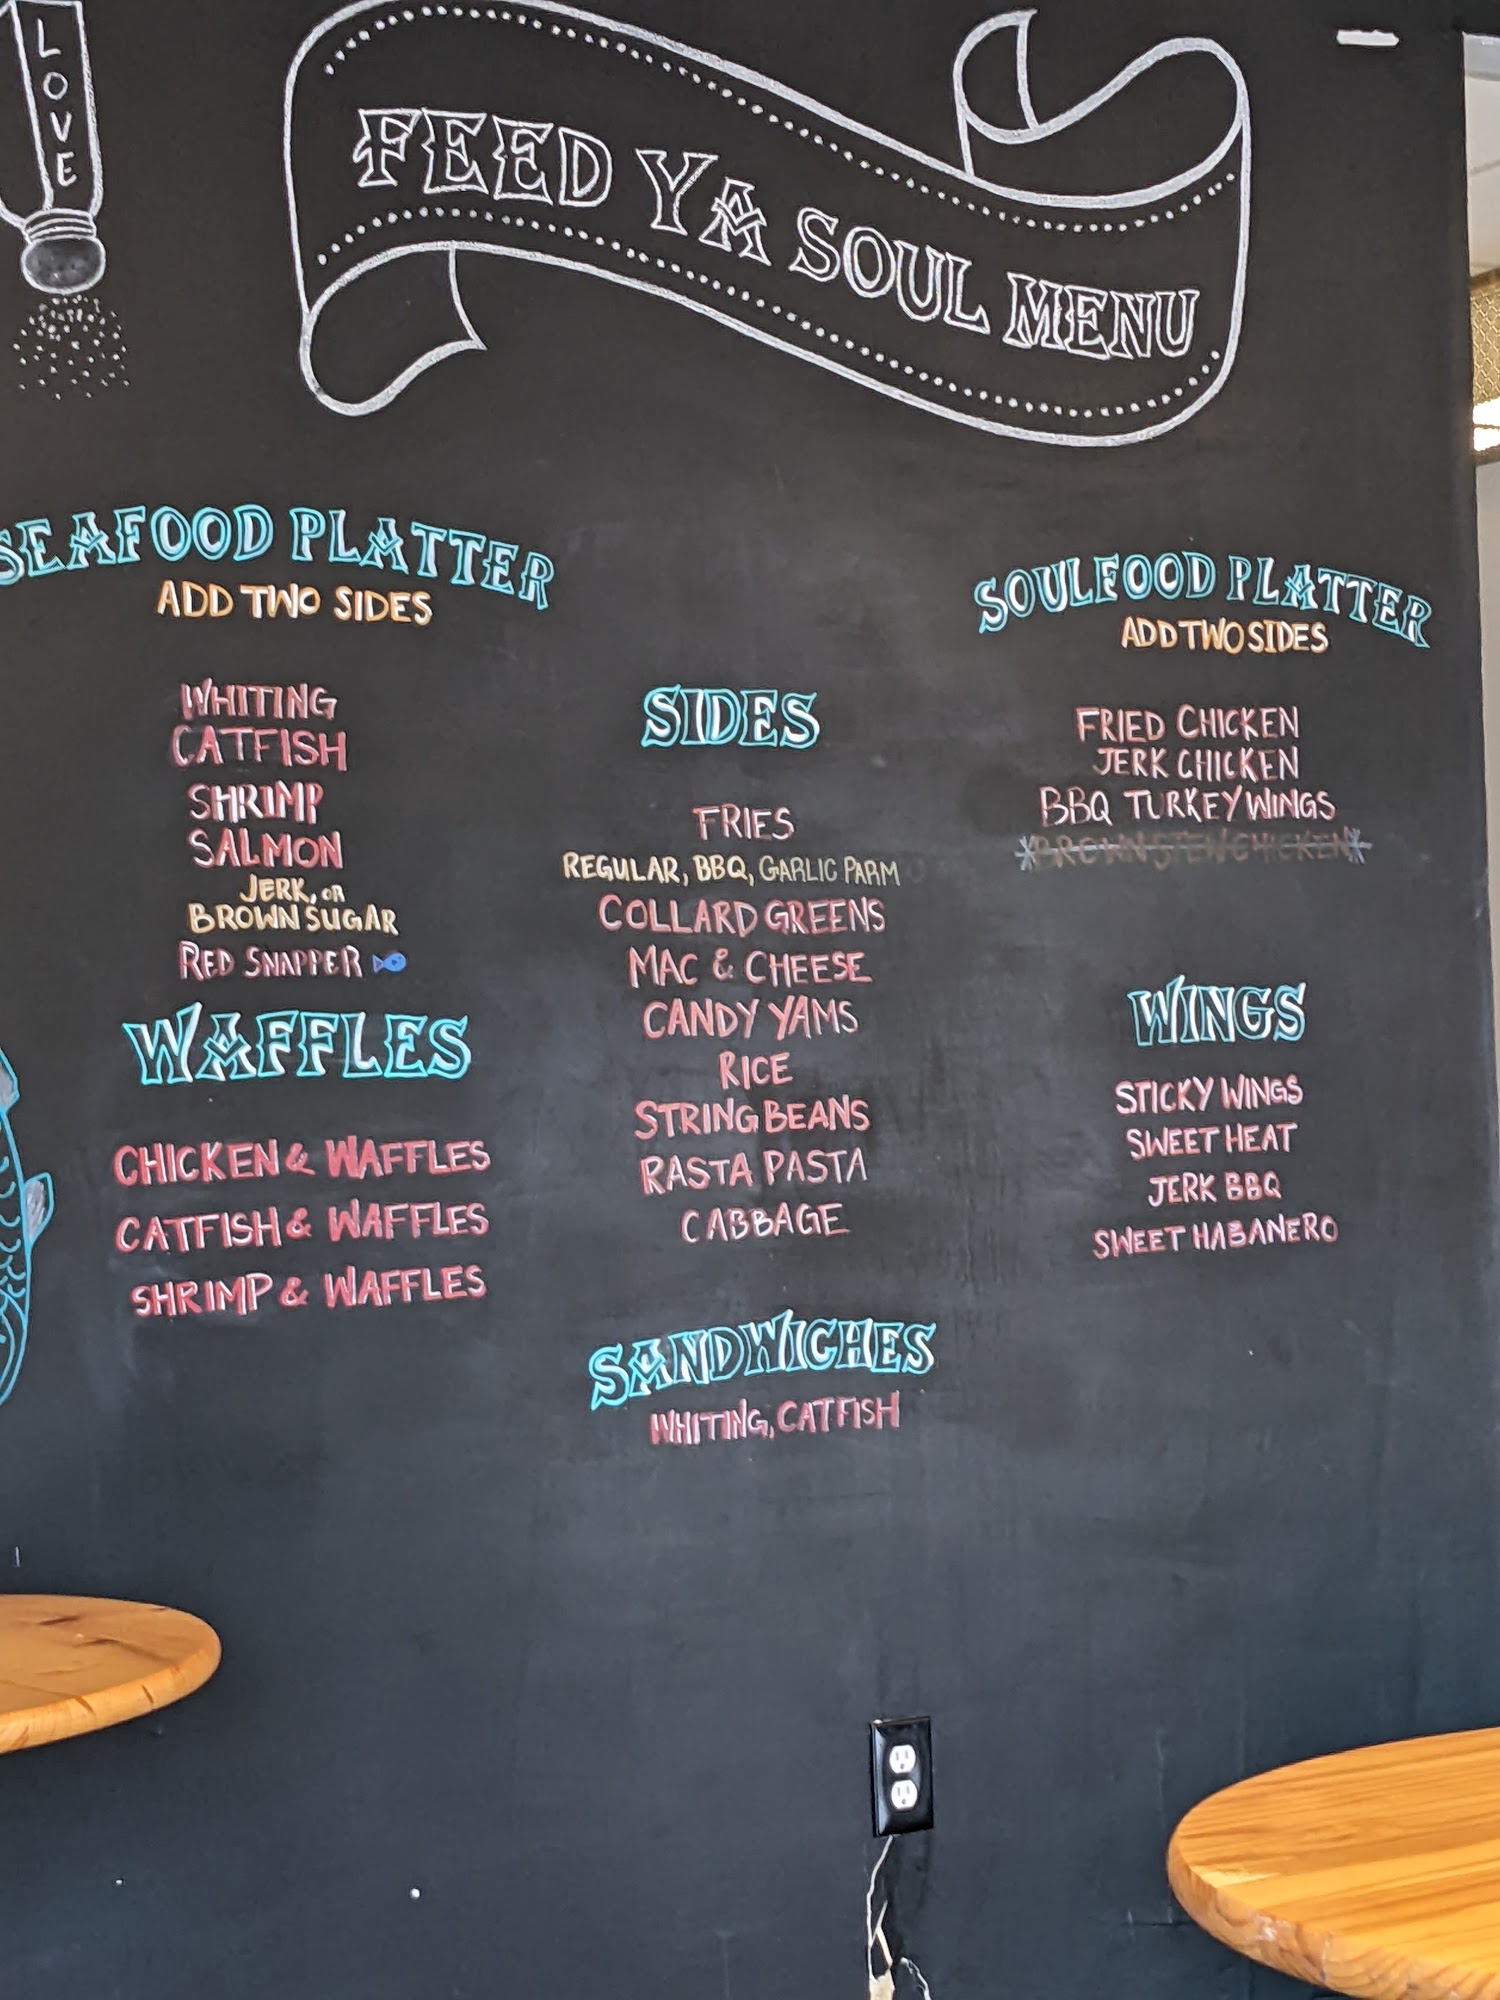 LOVE
FEED YA SOUL MENU
SEAFOOD PLATTER
ADD TWO SIDES
WHITING
CATFISH
SHRIMP
SALMON
JERK, OR
BROWN SUGAR
RED SNAPPER
WAFFLES
CHICKEN & WAFFLES
CATFISH & WAFFLES
SHRIMP & WAFFLES
SIDES
FRIES
REGULAR, BBQ, GARLIC PARM
COLLARD GREENS
MAC & CHEESE
CANDY YAMS
RICE
STRING BEANS
RASTA PASTA
CABBAGE
SANDWICHES
WHITING, CATFISH
SOULFOOD PLATTER
ADD TWO SIDES
FRIED CHICKEN
JERK CHICKEN
BBQ TURKEY WINGS
*BROWN STEW CHICKEN*
WINGS
STICKY WINGS
SWEET HEAT
JERK BBQ
SWEET HABANERO